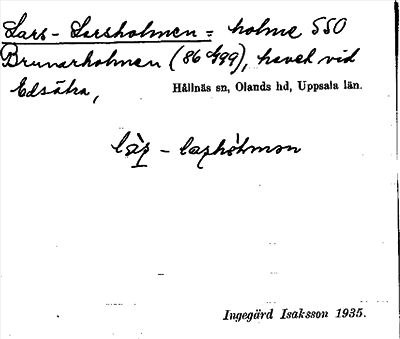 Lars-Larsholmen = holme SSO
Brunarholmen (86 c/499), havet vid
Edsätra,
Hållnäs sn, Olands hd, Uppsala län.
Ingegärd Isaksson 1935.